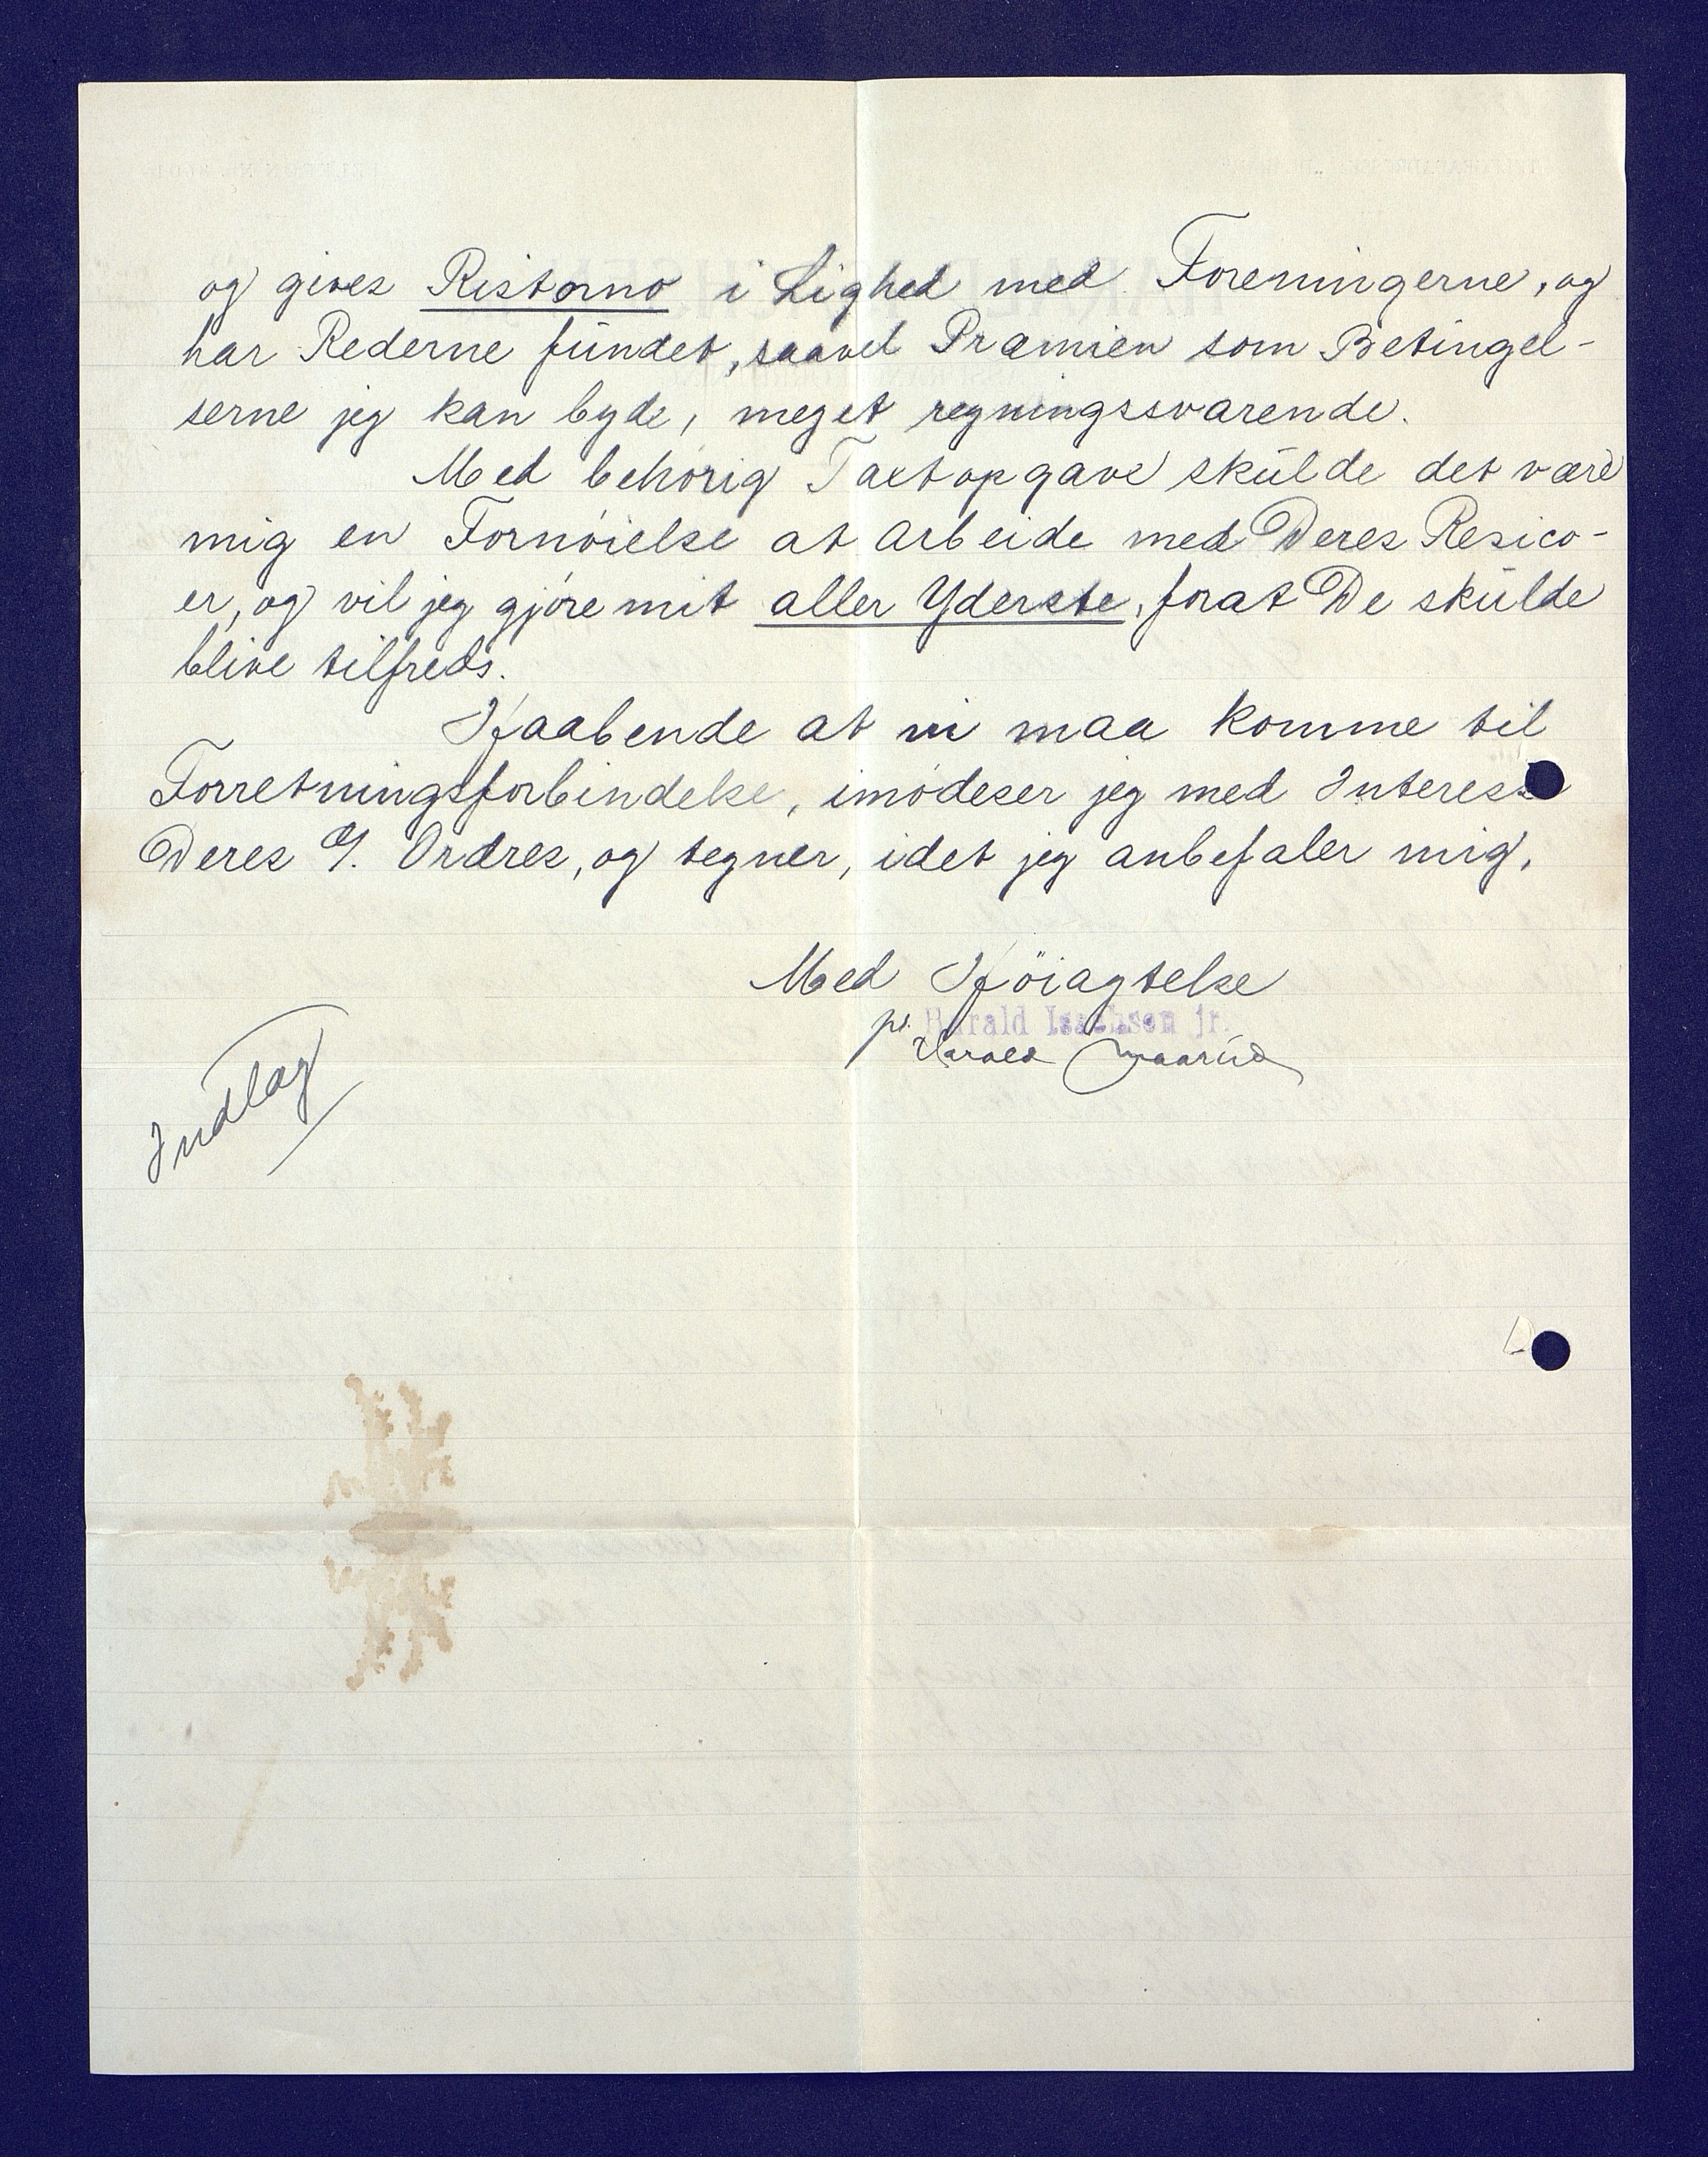 og gives Ristorno i Lighed med Foreningerne, og
har Rederne fundet, saavel Præmien som Betingel-
serne jeg kan byde, meget regningssvarende.
Med behørig Taxtopgave skulde det være
mig en Fornøielse at arbeide med Deres Resico-
er, og vil jeg gjøre mit aller Yderste, forat De skulde
blive tilfreds.
Haabende at vi maa komme til
Forretningsforbindelse, imødeser jeg med Interesse
Deres G. Ordres, og tegner, idet jeg anbefaler mig,
Med Høiagtelse
pr. Harald Isachsen jr.
Harald
Indlag